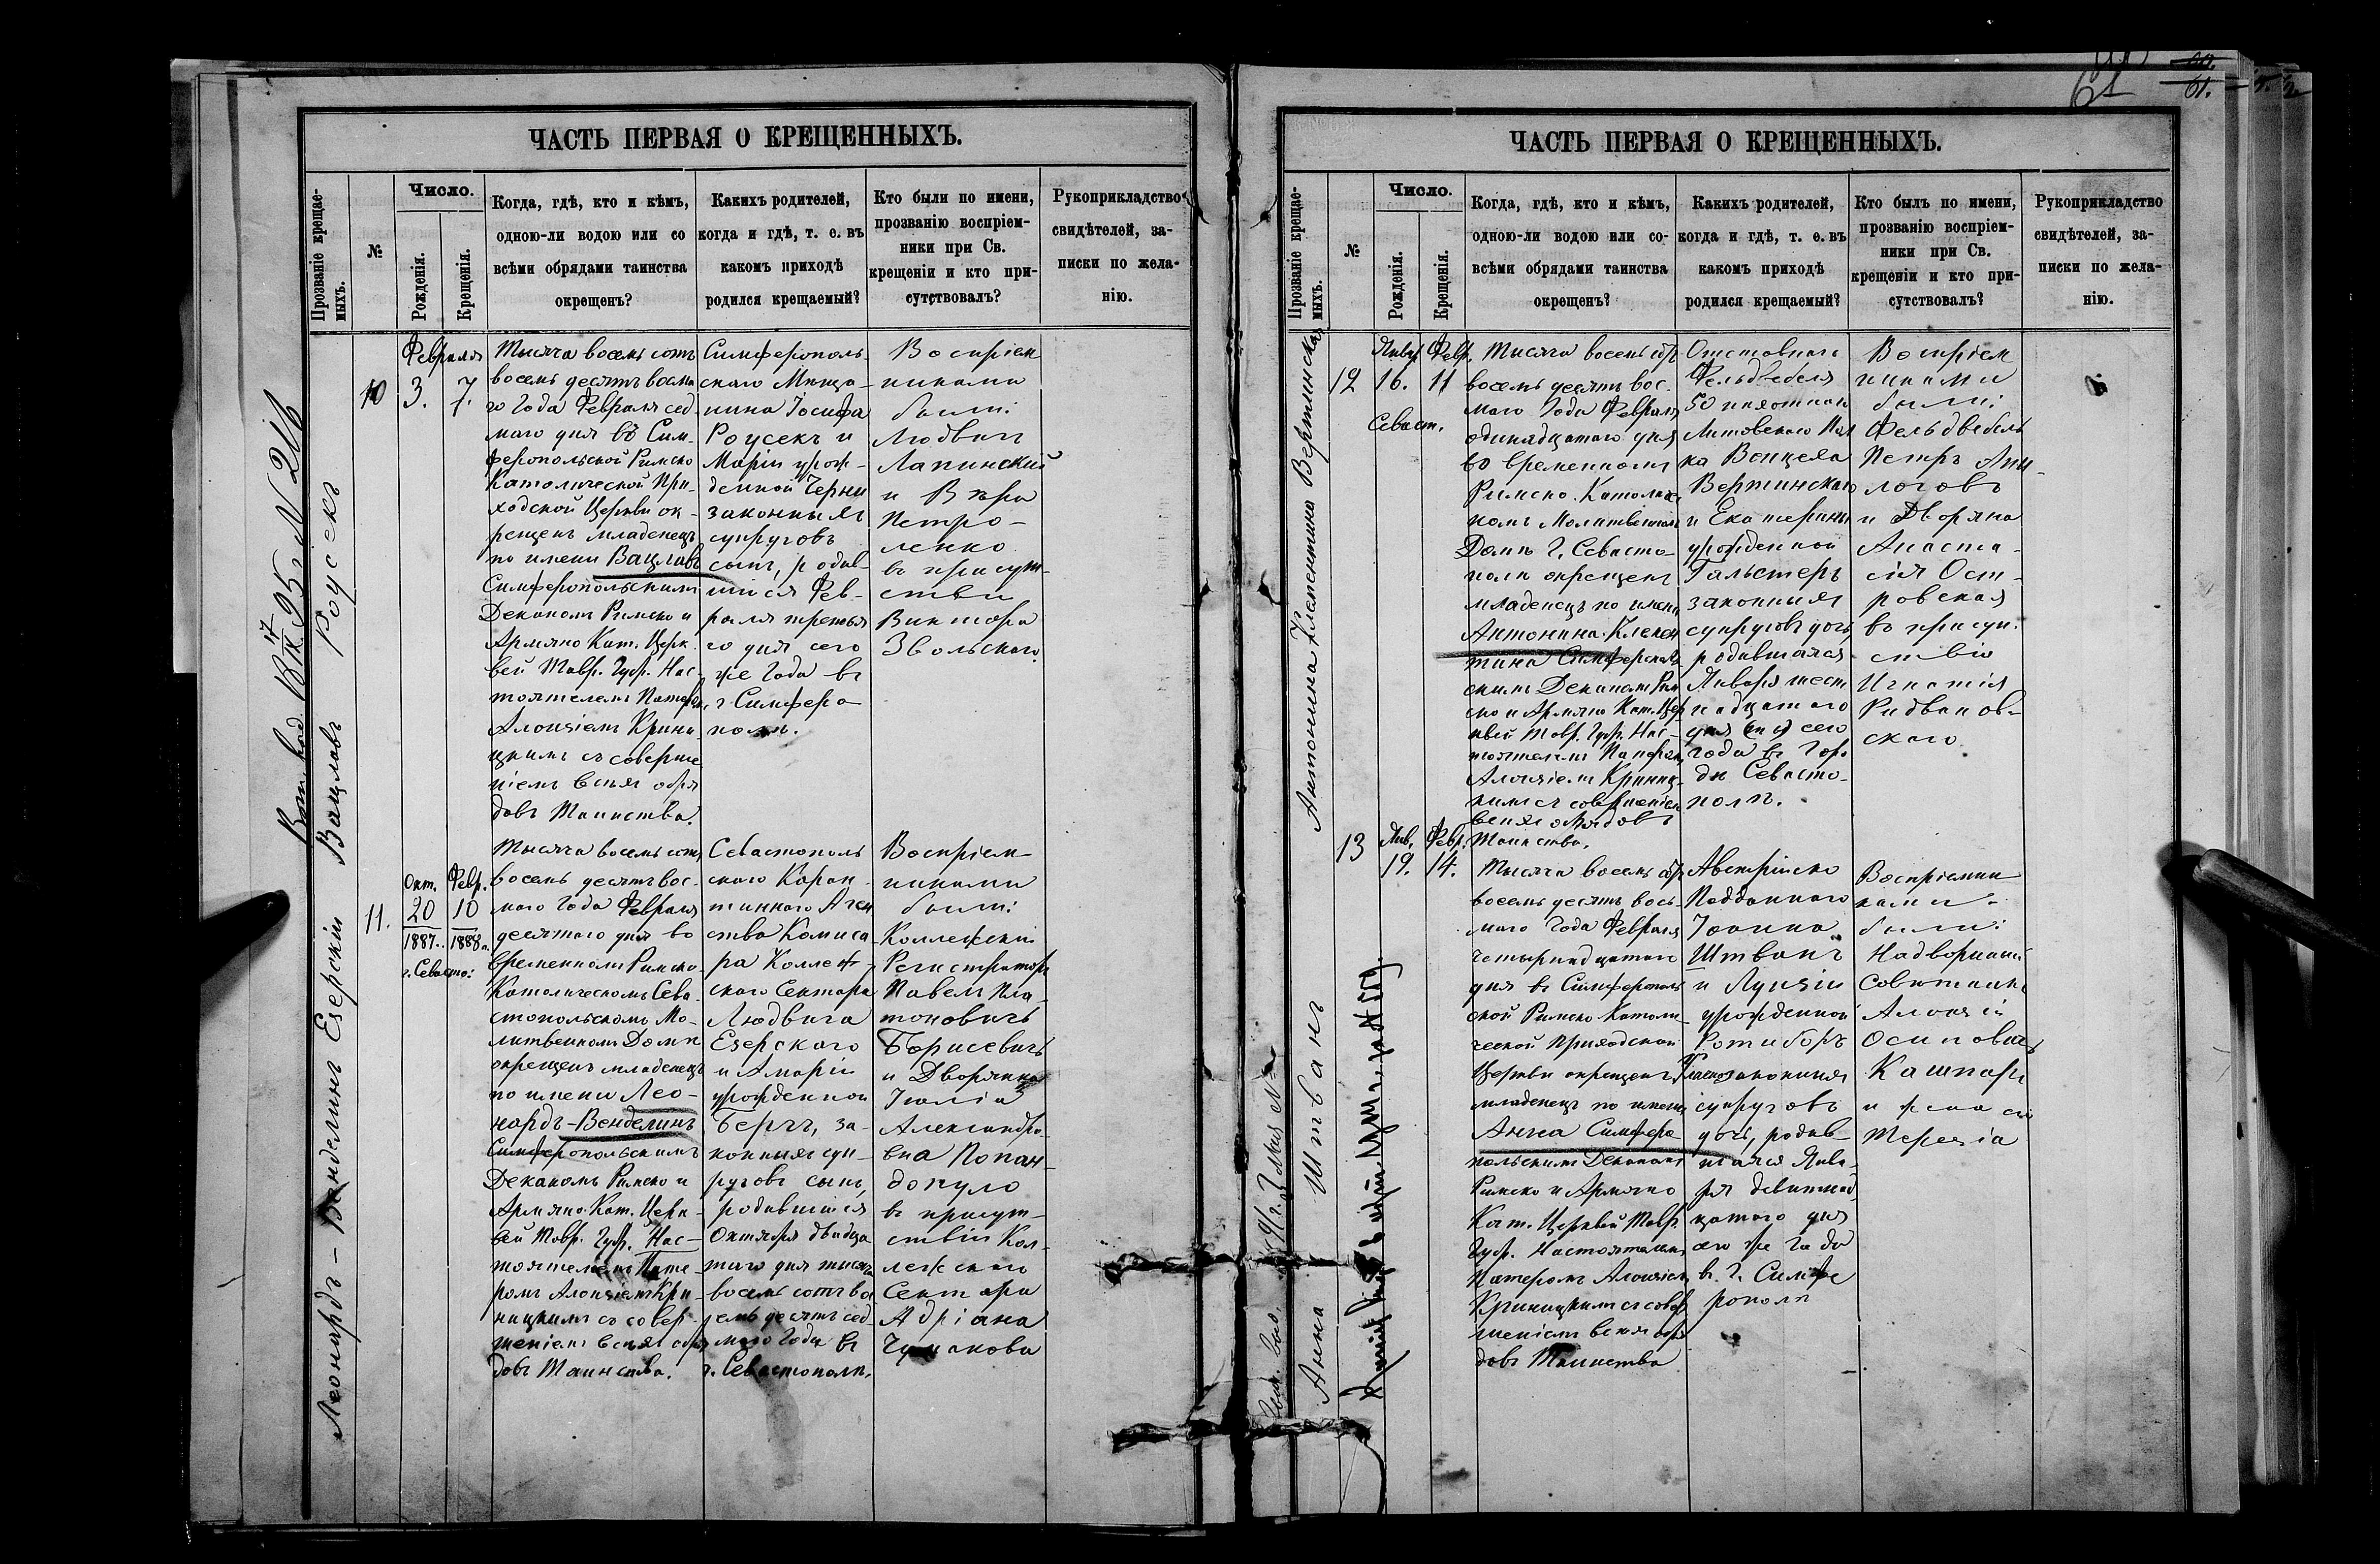 ЧАСТЬ ПЕРВАЯ О КРЕЩЕННЫХЪ.
Прозваніе крещае-
мыхъ.
№
Число.
Рожденія.
Крещенія.
Когда, гдѣ, кто и кѣмъ,
одною-ли водою или со
всѣми обрядами таинства
окрещенъ?
Какихъ родителей,
когда и гдѣ, т. е. въ
какомъ приходѣ
родился крещаемый?
Кто были по имени,
прозванію воспріем-
ники при Св.
крещеніи и кто при-
сутствовалъ?
Рукоприкладство
свидѣтелей, за-
писки по жела-
нію.
Вацлавъ Роусекъ
10
Февраля
3. 7.
Тысяча восемь сотъ
восемь десятъ восма
го Года Февраля сед
маго дня въ Сим-
феропольской Римско
Католической При-
ходской Церкви ок-
рещенъ младенецъ
по имени Вацлавъ
Симферопольскимъ
Деканомъ Римско и
Армяно Кат. Церк
вей Тавр. Губ. Нас
тоятелемъ Патеро
Алоизіемъ Крини
цкимъ съ соверше
ніемъ всѣхъ обря
довъ Таинства.
Симферополь-
скаго Мѣща-
нина Іосифа
Роусекъ и
Маріи урож-
денной Черни
законныхъ
супруговъ
сынъ, родив-
шійся Фев-
раля третья
го дня сего
же Года въ
г. Симферо
полѣ.
Воспріем
никами
были:
Людвигъ
Лапинский
и Вѣра
Петро-
ленко
въ присут-
ствіи
Виктора
Звольскаго.
Леонардъ - Венделинъ Езерскій
11.
Окт. Февр.
20 10
1887. 1888
г. Севасто:
Тысяча восемь сотъ
восемь десятъ вос-
маго Года Февраля
десятаго дня во
временномъ Римско-
Католическомъ Сева-
стопольскомъ Мо-
литвенномъ Домѣ
окрещенъ младенецъ
по имени Лео-
нардъ-Венделинъ
Симферопольскимъ
Деканомъ Римско и
Армяно-Кат. Церк-
вей Тавр. Губ. Нас-
тоятелемъ Пате-
ромъ Алоизіемъ Кри-
ницкимъ съ совер-
шеніемъ всѣхъ обря
довъ Таинства.
Севастополь
скаго Каран-
тиннаго Аген
ства Комиса
ра Коллеж-
скаго
Людвига
Езерскаго
и Маріи
урожденной
Бергъ, за-
конныхъ суп-
руговъ сынъ,
родившійся
Октября двадца
таго дня тысяча
восемь сотъ во
семь десятъ сед
маго Года въ
г. Севастополѣ.
Воспріем-
никами
были:
Коллежскій
Регистраторъ
Павелъ Пла-
тоновичъ
Борисевичъ
и Дворянка
Юлія
Александро-
вна Попан-
допуло
въ присут-
ствіи Кол-
лежскаго
Адріана
61
61.
ЧАСТЬ ПЕРВАЯ О КРЕЩЕННЫХЪ.
Прозваніе крещае-
мыхъ.
№
Число.
Рожденія.
Крещенія.
Когда, гдѣ, кто и кѣмъ,
одною-ли водою или со-
всѣми обрядами таинства
окрещенъ?
Какихъ родителей,
когда и гдѣ, т. е. въ
какомъ приходѣ
родился крещаемый?
Кто былъ по имени,
прозванію воспріем-
ники при Св.
крещеніи и кто при-
сутствовалъ?
Рукоприкладство
свидѣтелей, за-
писки по жела-
нію.
Антонина Клементина Вертинская
12
Янвр Февр.
16. 11
Севаст.
Тысяча восемь сотъ
восемь десятъ вос-
маго Года Февраля
одинадцатаго дня
во временномъ
Римско-Католичес
комъ Молитвенномъ
Домѣ г. Севасто-
полѣ окрещенъ
младенецъ по имени
Антонина-Клемен
тина Симферополь
скимъ Деканомъ Рим
ско и Армяно Кат. Цер
квей Тавр. Губ. Нас-
тоятелемъ Патеромъ
Алоизіемъ Криниц-
кимъ съ совершеніем
всѣхъ обрядовъ
Таинства.
Отставнаго
Фельдвебеля
50 пѣхотнаго
Литовскаго Пол
ка Венцеля
Вертинскаго
и Екатерины
урожденной
Гальстеръ
законныхъ
супруговъ дочь
родившаяся
Января шест
надцатаго
дня сего
года въ Горо
дѣ Севасто-
полѣ.
Воспріем
никами
были:
Фельдвебель
Петръ
и Дворяна
Анаста-
сія Ост-
ровская
въ присут-
ствіи
Игнатія
Ридванов-
скаго
Анна Штванъ
13
Янв. Февр.
19. 14.
Тысяча восемь сотъ
восемь десятъ вось-
маго Года Февраля
четырнадцатаго
дня въ Симферополь
ской Римско Католи
ческой Приходской
Церкви окрещенъ
младенецъ по имени
Анна Симферо
польскимъ Деканомъ
Римско и Армяно
Кат. Церквей Тавр.
Губ. Настоятелемъ
Патеромъ Алоизіем
Криницкимъ съ совер
шеніемъ всѣхъ обря
довъ Таинства
Австрійско
Подданнаго
Іоанна
Штванъ
и Луизіи
урожденной
Котиборъ
законныхъ
супруговъ
дочь, родив-
шаяся Янва-
ря девятнад
цатаго дня
сего же Года
въ г. Симфе
рополѣ
Воспріемни
ками
были:
Надворный
Совѣтникъ
Алоизій
Осиповичъ
Кашпаръ
и жена его
Терезіа